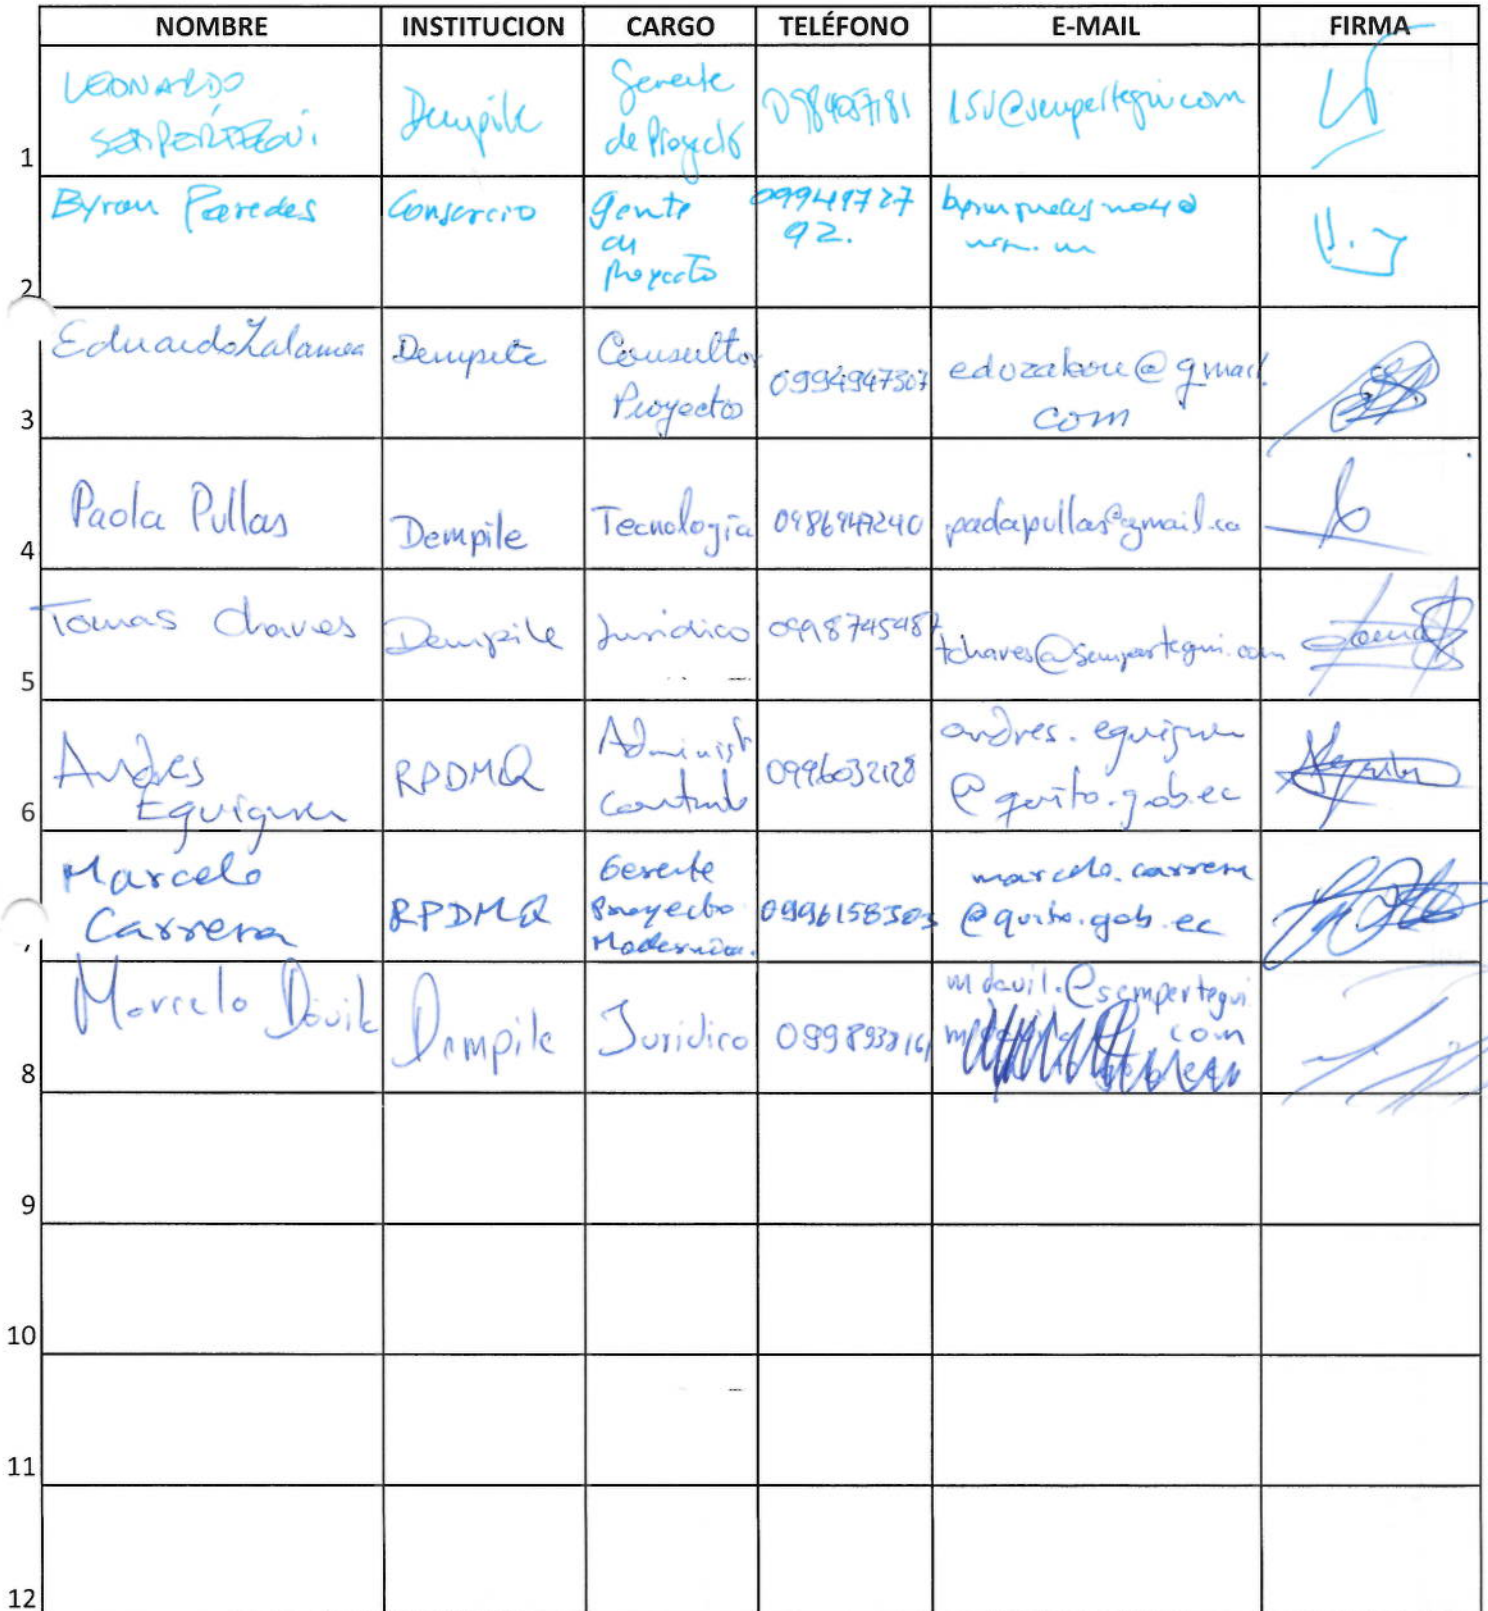 NOMBRE INSTITUCION CARGO TELÉFONO E-MAIL FIRMA
1 LEONARDO SEMPÉRTEGUI Dempile Gerente de Proyecto
2 Byron Paredes Consorcio gente de Proyecto 0994972792.
3 Eduardo Zalamea Dempile Consultor Proyectos 0994947307 @gmail.com
4 Paola Pullas Dempile Tecnología paolapullas@gmail.co
5 Tomas Chaves Dempile Jurídico 0998745487 tchaves@sempertegui.com
6 Andres Eguiguren RPDMQ Administ Contrato 0996032128 andres.eguiguren@quito.gob.ec
7 Marcelo Carrera RPDMQ Gerente Proyecto Moderniza. 0996158303 marcelo.carrera@quito.gob.ec
8 Marcelo Dávila Dempile Jurídico 0998938161 mdavil.@sempertegui.com
9
10
11
12